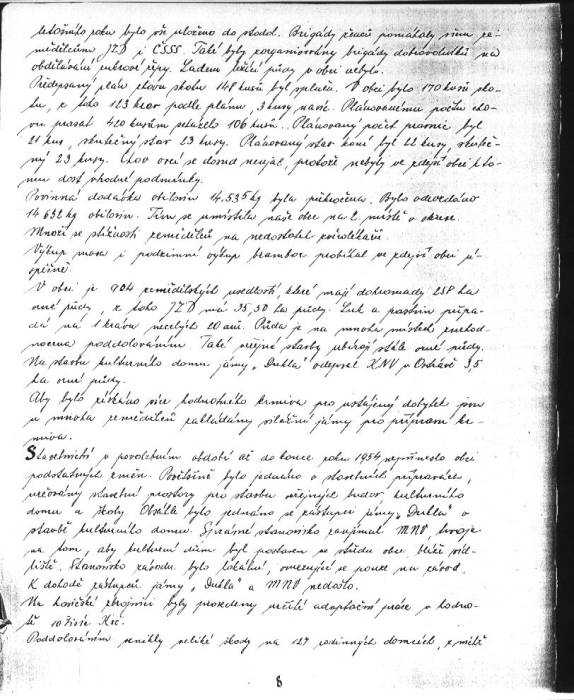 letošního roku bylo vše uloženo do stodol. Brigády žencú pomáhaly všem ze-
mědělcům JZD i ČSSS. Také byly zorganisovány brigády dobrovolníků na
obdělávání cukrové řepy. Ladem ležící půdy v obci nebylo.
Předepsaný plán chovu skotu 148 kusů byl splněn. V obci bylo 170 kusů sko-
tu, z toho 123 krav podle plánu, 3 kusy navíc. Plánovanému počtu cho-
vu prasat 420 kusům scházelo 106 kusů. Plánovaný počet prasnic byl
21 kus, skutečný stav 23 kusy. Plánovaný stav koní byl 22 kusy, skuteč-
ný 23 kusy. Chov ovcí se dosud neujal, protože nebyly ve zdejší obci k to-
mu dost vhodné podmínky.
Povinná dodávka obilovin 14.535 kg byla překročena. Bylo odevzdáno
14 632 kg obilovin. Tím se umístila naše obec na 2. místě v okrese.
Množí se stížnosti zemědělců na nedostatek zvěrolékařů.
Výkup masa i podzimní výkup brambor probíhal ve zdejší obci ú-
spěšně.
V obci je 904 zemědělských usedlostí, které mají dohromady 218 ha
orné půdy, z toho JZD má 35,50 ha půdy. Luk a pastvin připa-
dá na 1 krávu necelých 20 arů. Půda je na mnoha místech znehod-
nocena poddolováním. Také veřejné stavby ubírají stále orné půdy.
Na stavbu kulturního domu jámy „Dukla" odeprvé KNV v Ostravě 3,5
ha orné půdy.
Aby bylo získáno více hodnotného krmiva pro ustájený dobytek jsou
u mnoha zemědělců zakládány silážní jámy pro přípravu kr-
miva.
Stavebnictví v povolebním období až do konce roku 1954 nepřineslo obci
podstatných změn. Povětšině bylo jednáno o stavebních přípravách,
určovány stavební prostory pro stavbu veřejných budov, kulturního
domu a školy. Obzvlášť bylo jednáno se zástupci jámy „Dukla" o
stavbě kulturního domu. Správné stanovisko zaujímal MNV, trvaje
na tom, aby kulturní dům byl postaven ve středu obce, blíže síd-
liště. Stanovisko závodu bylo lokální, omezující se pouze na závod.
K dohodě zástupců jámy „Dukla" a MNV nedošlo.
Na hasičské zbrojnici byly provedeny určité adaptační práce v hodno-
tě 10 tisíc Kčs.
Poddolováním vznikly veliké škody na 127 rodinných domcích, zvláště
8